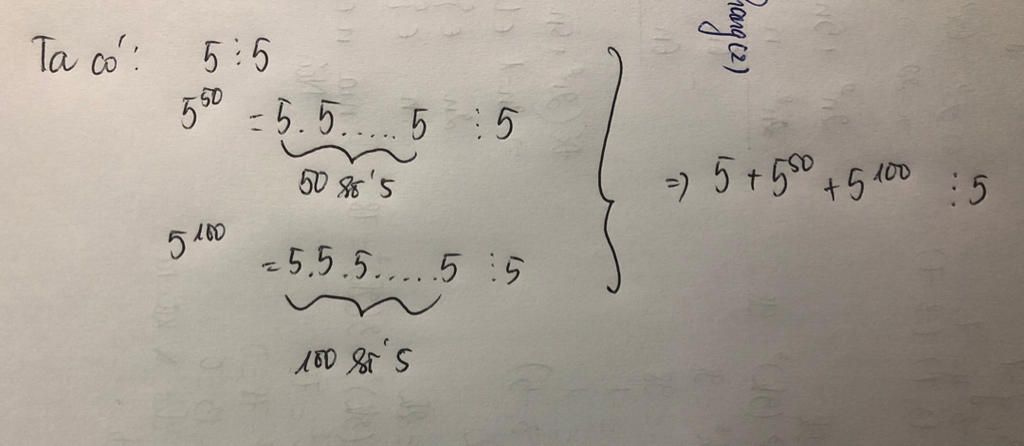 Ta có: 5 ⋮ 5
5^50 = 5. 5..... 5 ⋮ 5
50 số 5
5^100 = 5.5.5.....5 ⋮ 5
100 số 5
=> 5 + 5^50 + 5^100 ⋮ 5